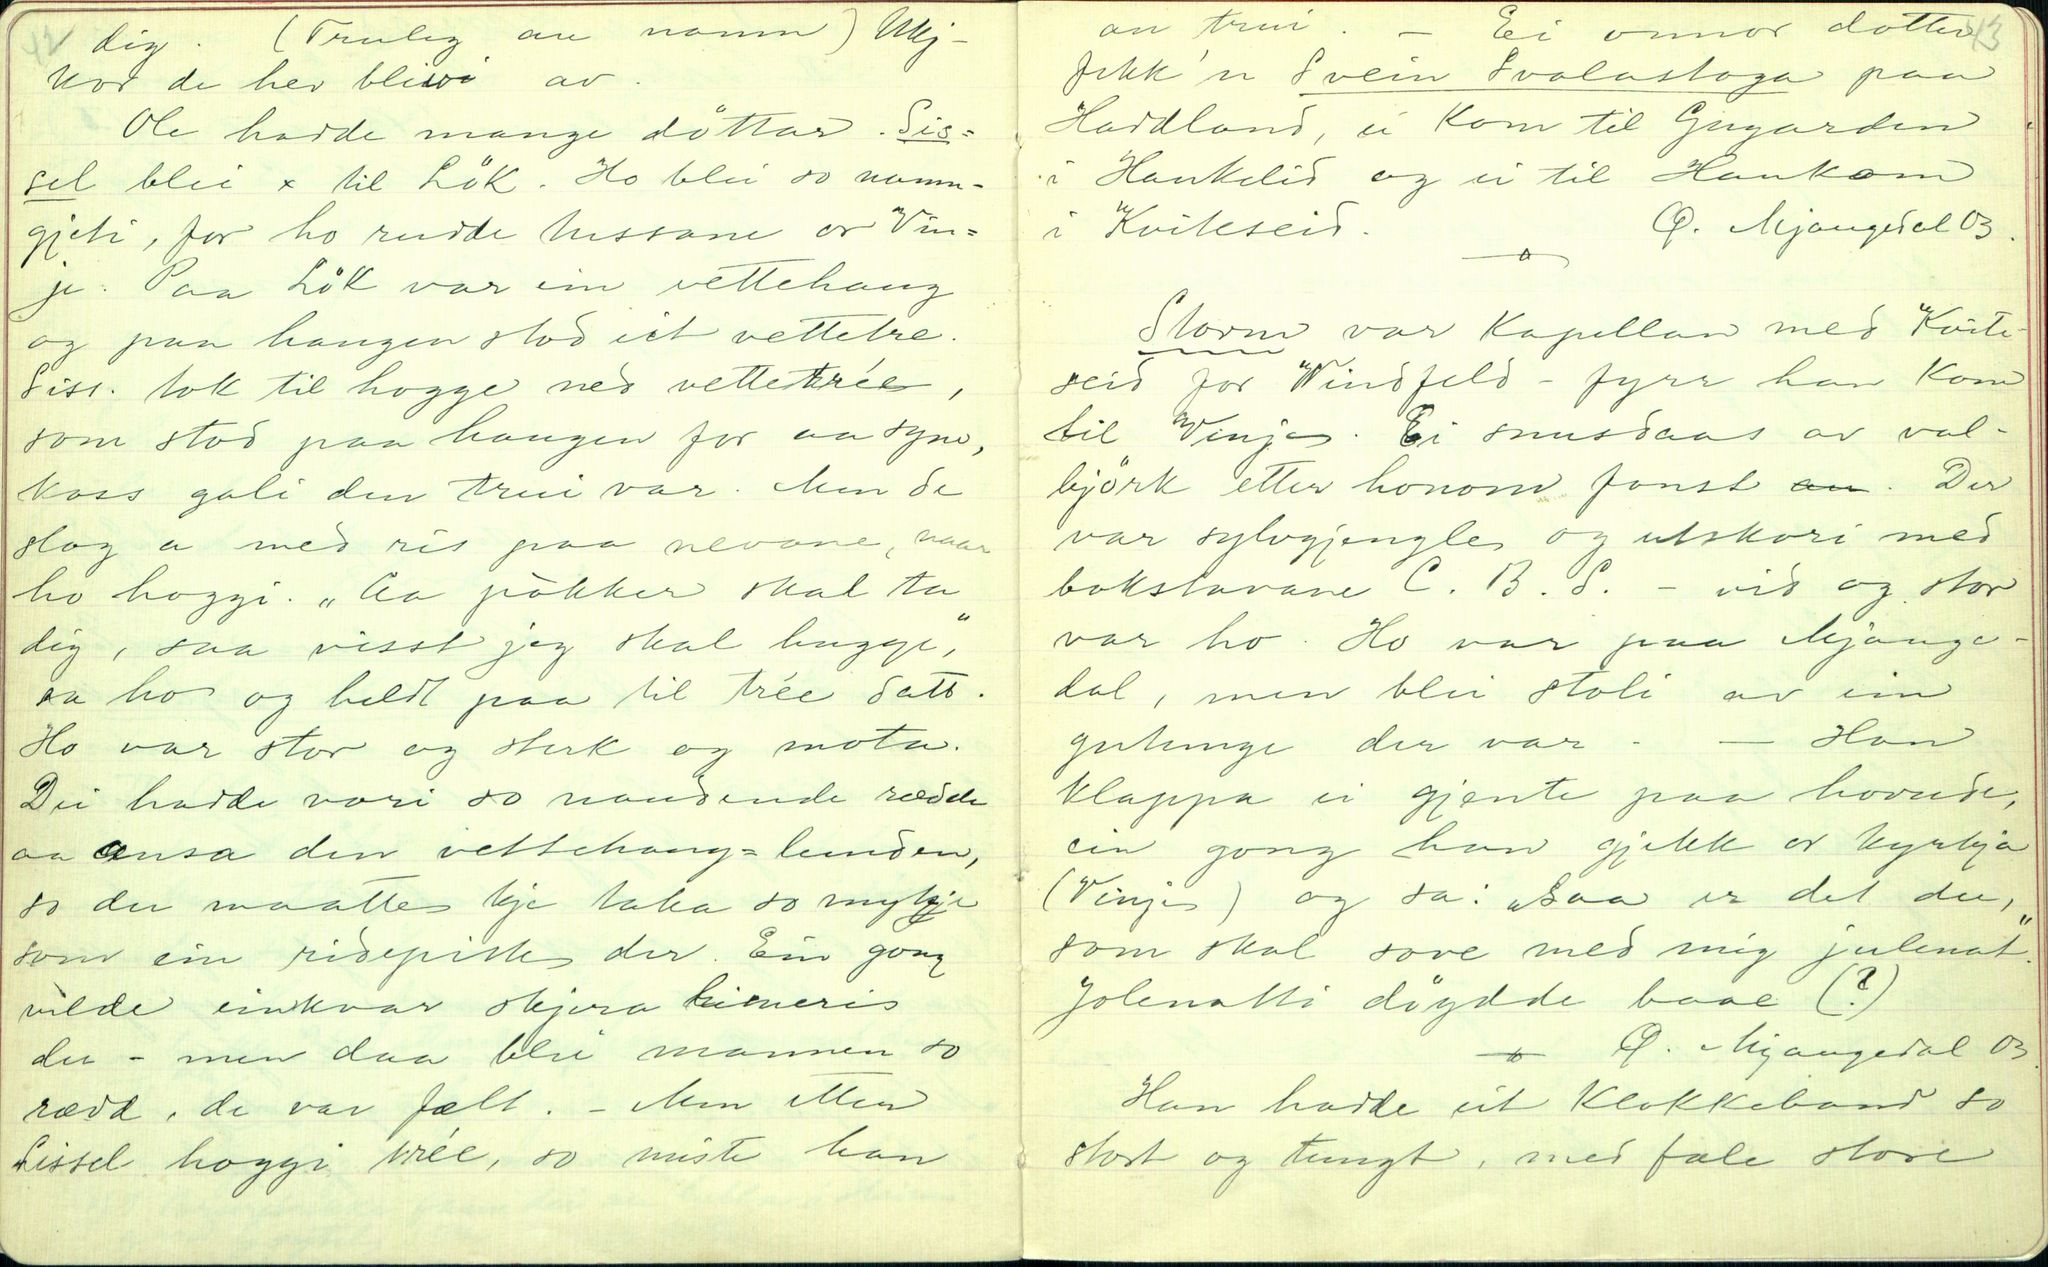 42
dig. (Truleg au namn) Ikkj-
kor de hev blivi av.
Ole hadde mange döttar. Sis=
sel blei x til Lök. Ho blei so namn-
gjeti, for ho rudde tussane or Vin=
je. Paa Lök var ein vettehaug
og paa haugen stod eit vettetre.
Siss. tok til hogge ned vettetrée,
som stod paa haugen for aa syne,
koss gali den trui var. Men de
slog a med ris paa nevane, naar
ho hoggi. "Aa pökker skal ta
dig, saa visst jeg skal hugge,"
sa ho og heldt paa til trée datt.
Ho var stor og sterk og mota.
Dei hadde vori so naudende rædde
aa ansa den vettehaug=lunden,
so dei maatte kje taka so mykje
som ein ridepisk der. Ein gong
vilde einkvar skjera limeris
der - men daa blei mannen so
rædd, de var fælt. - Men etter
Sissel hoggi trée, so miste han
43
an trui. - Ei onnor dotter
fekk'n Svein Svalastoga paa
Haddland, ei kom til Gugarden
i Haukelid og ei til Haukom
i Kviteseid. Q. Mjaugedal 03.
Storm var kapellan med Kvite-
seid for Windfeld - fyrr han kom
til Vinje. Ei snusdaas av val-
björk etter honom fanst au. Der
var sylvgjengle og utskori med
bokstavane C. B. S. - vid og stor
var ho. Ho var paa Mjauge-
dal, men blei stoli av ein
gutunge der var. - Han
klappa ei gjente paa hovude,
ein gong han gjekk or kyrkja
(Vinje) og sa: "saa er det du,
som skal sove med mig julenat."
Jolenatti döydde baae (?)
Q. Mjaugedal 03
Han hadde eit klokkeband so
stort og tungt, med fæle store